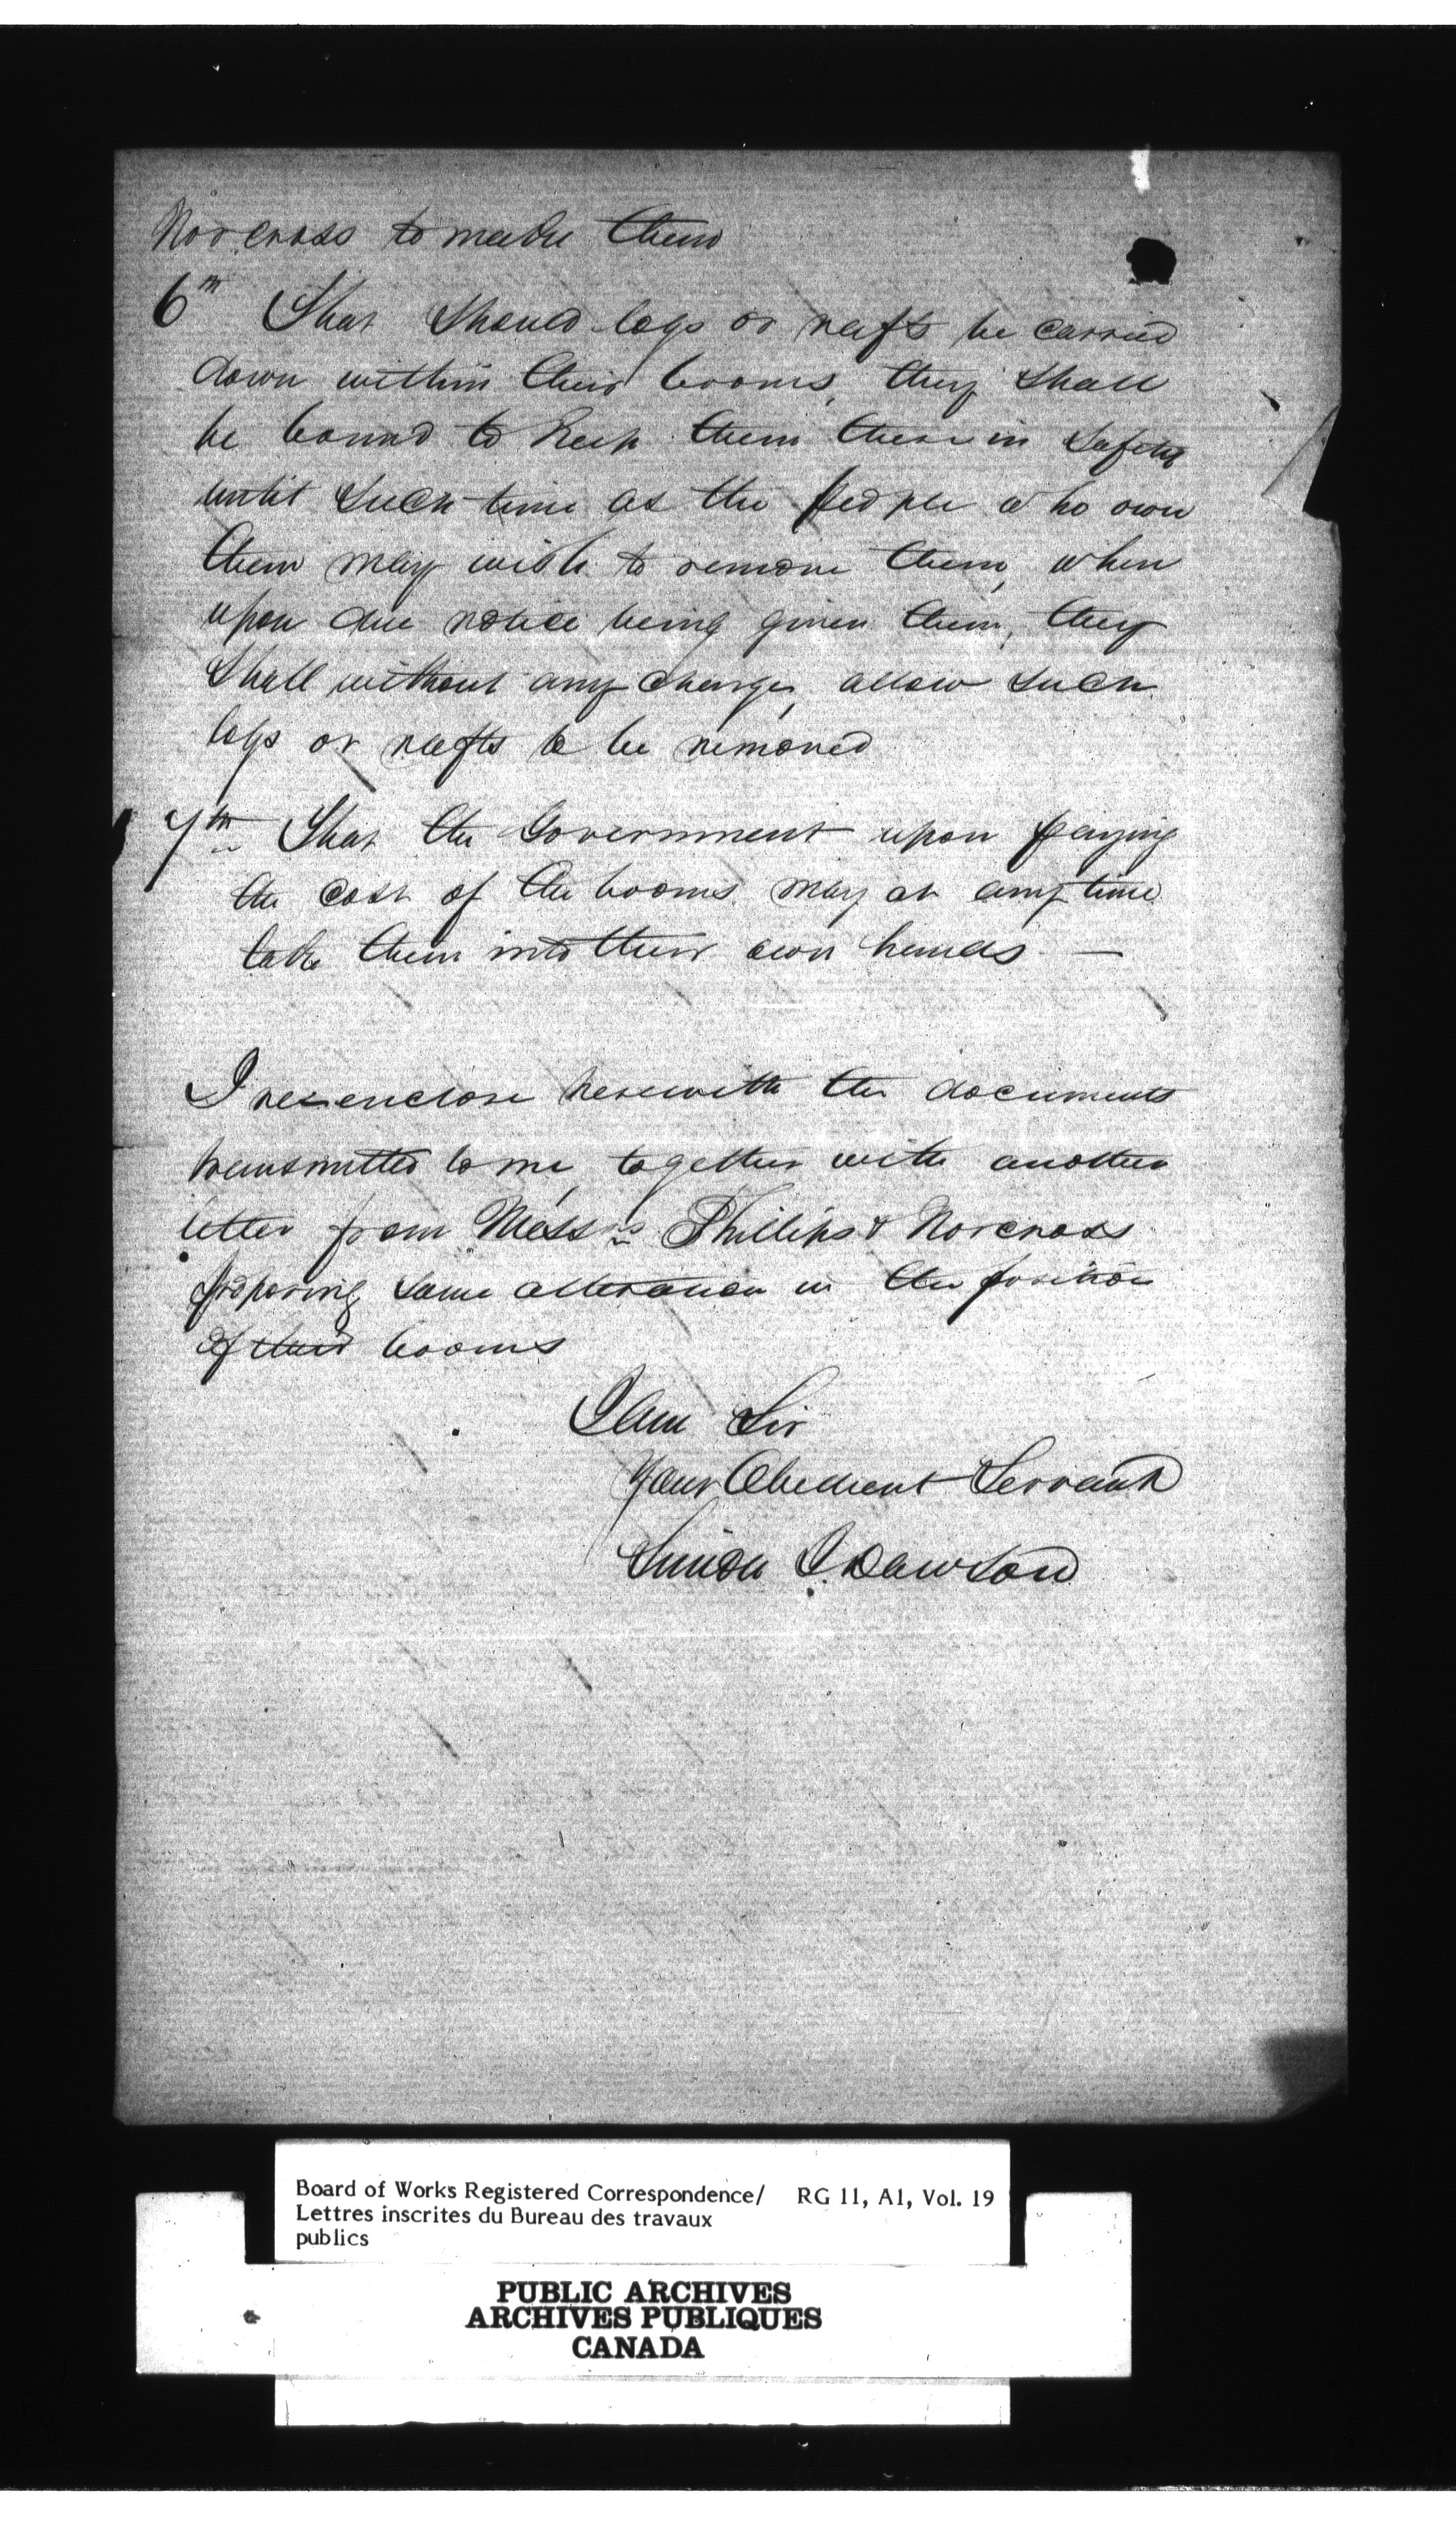 Norcross to make them
6th That should logs or rafts be carried
down within their booms, they shall
be bound to keep them there in safety
until such time as the people who own
them may wish to remove them, when
upon due notice being given them, they
shall without any charge, allow such
logs or rafts to be removed
7th That the Government upon paying
the cost of the booms may at any time
take them into their own hands —
I re-enclose herewith the documents
transmitted to me, together with another
letter from Messrs Phillips & Norcross
proposing some alteration in the position
of their booms
I am Sir
Your Obedient Servant
Simon J. Dawson
Board of Works Registered Correspondence/ RG 11, A1, Vol. 19
Lettres inscrites du Bureau des travaux
publics
PUBLIC ARCHIVES
ARCHIVES PUBLIQUES
CANADA